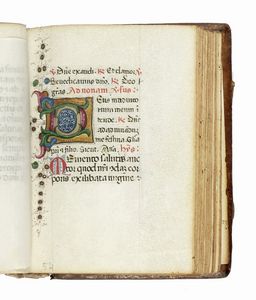 ℣ Dñe exaudi. ℟ Et clamor. ℣
Benedicamus dño. ℟ Deo
gras. Ad nonam. ℣sus.
Deus in adiuto
rium meum in
tende. ℟ Dñe
ad adiuuandũ
me festina. Glia
pri & filio. Sicut. Ana. hys
Memento salutis auc
tor quod nri qdaz cor
poris ex illibata uirgine